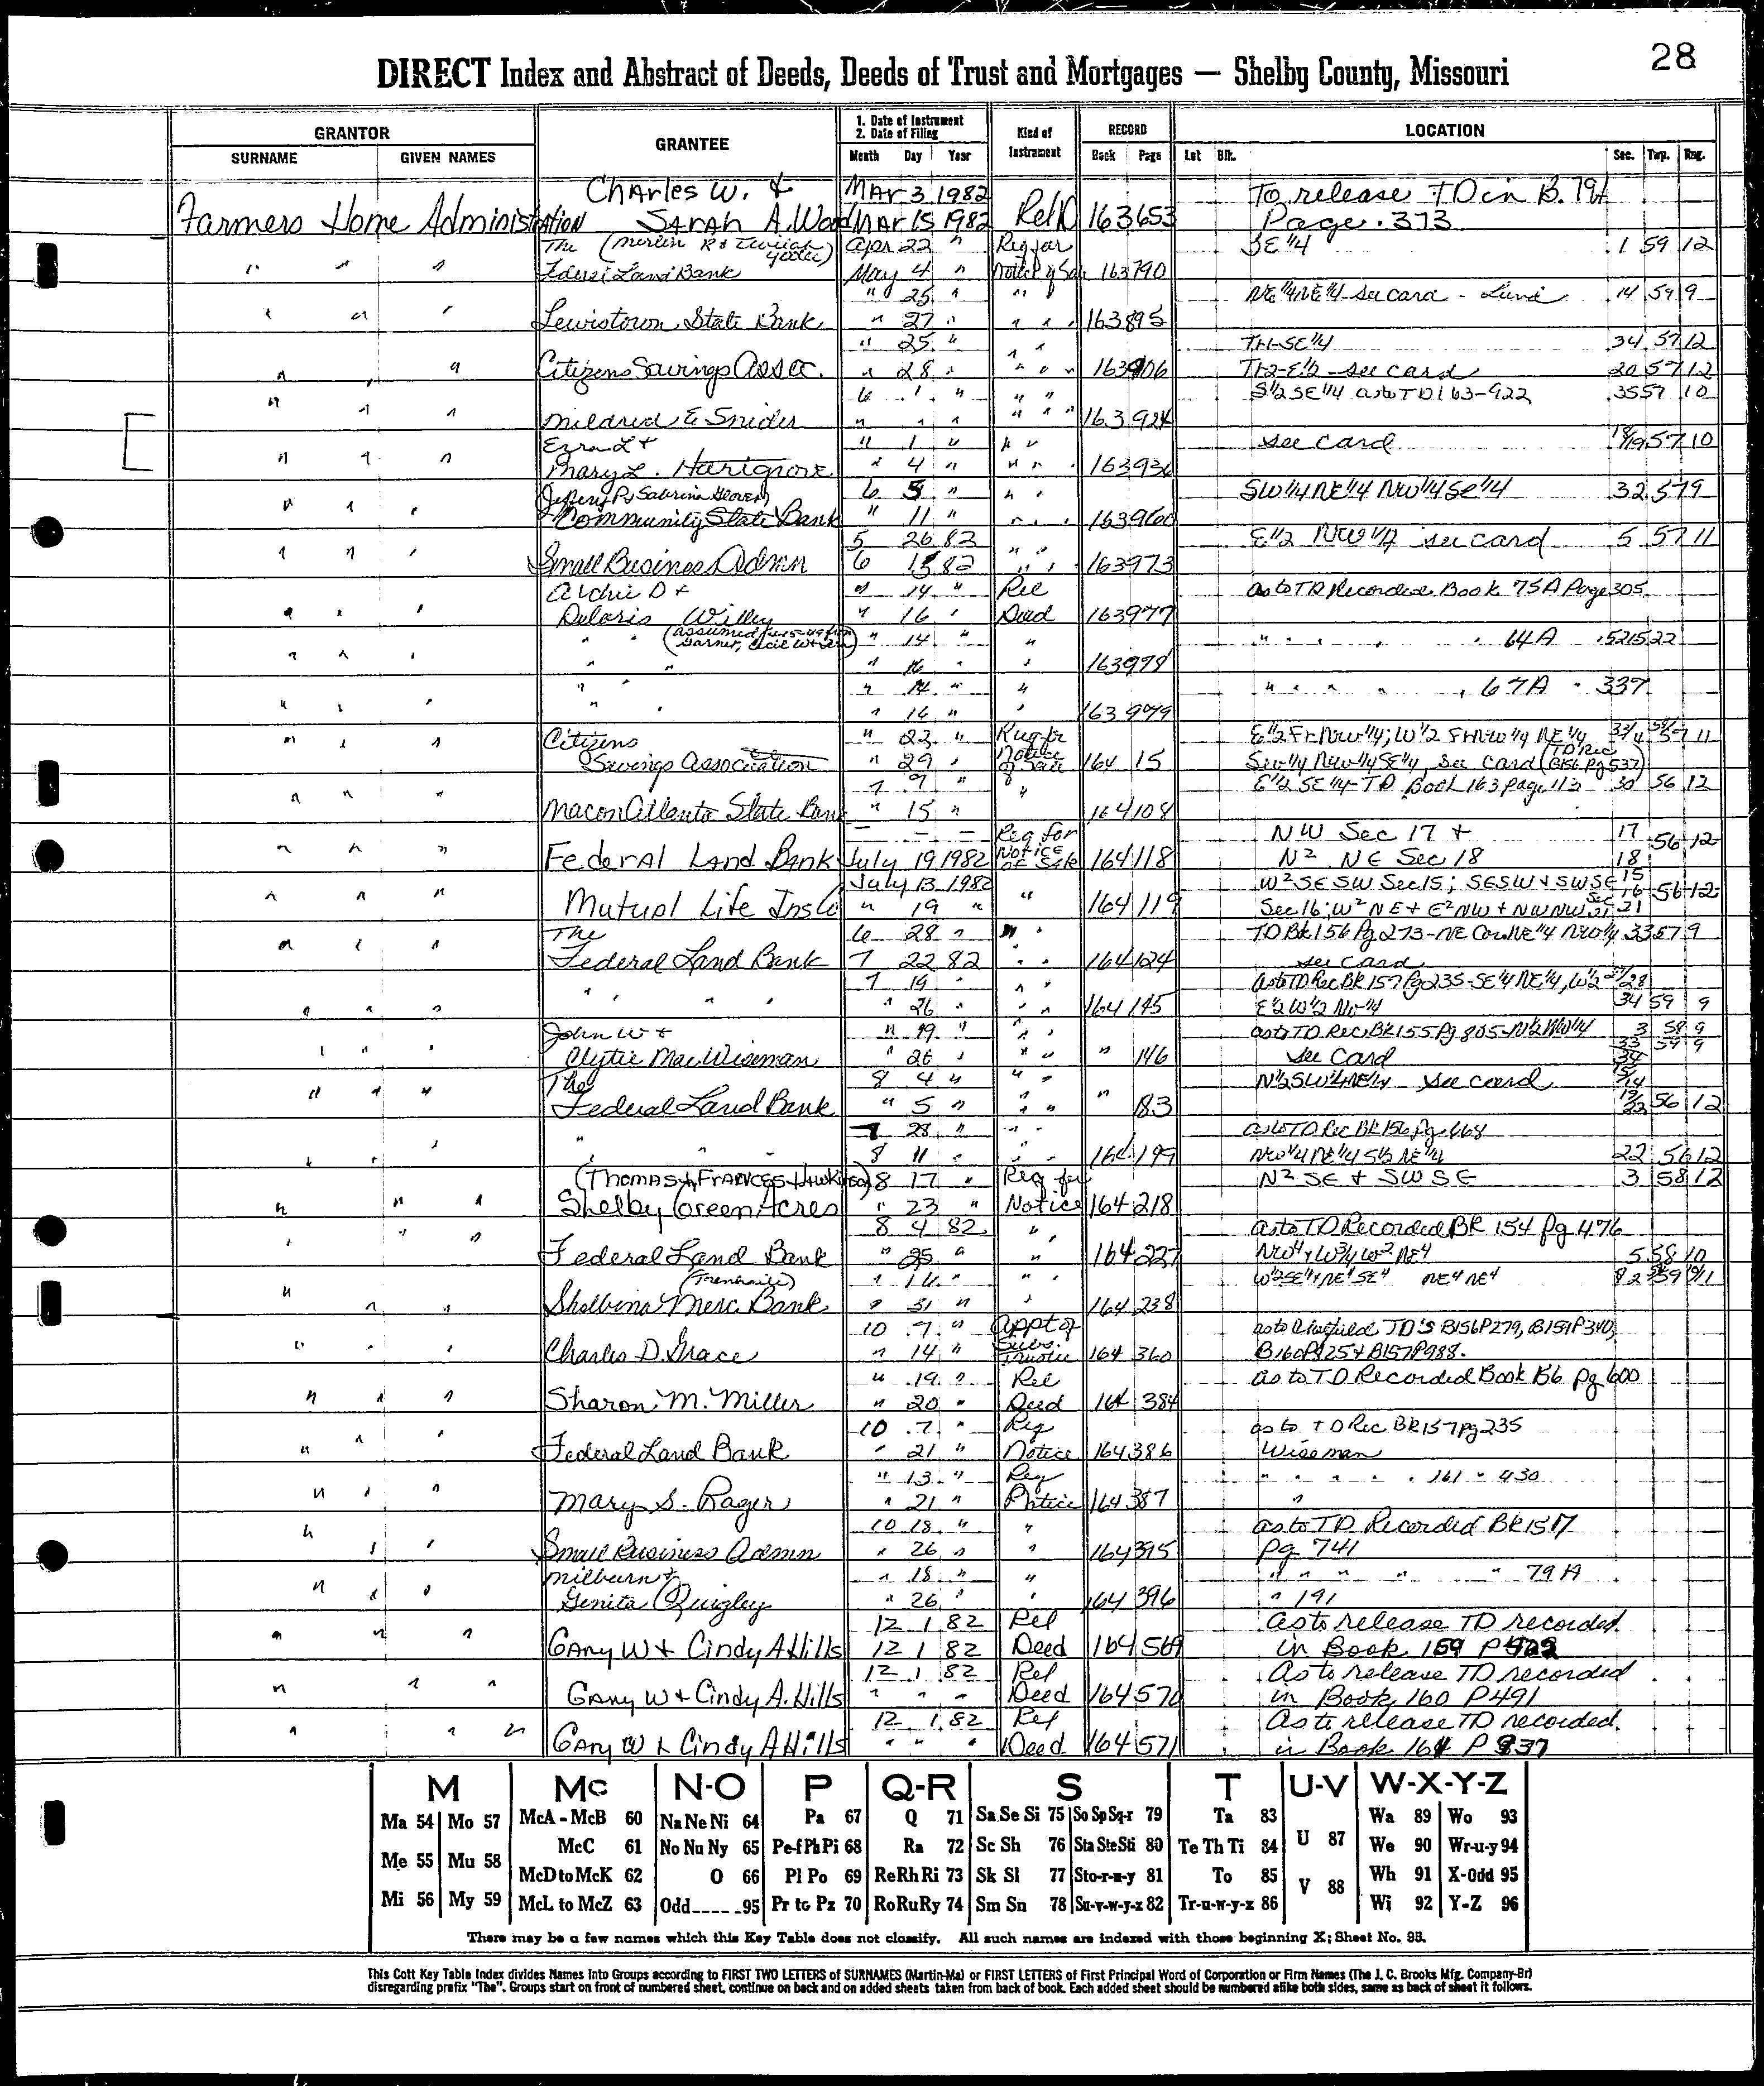 28
DIRECT Index and Abstract of Deeds, Deeds of Trust and Mortgages — Shelby County, Missouri
GRANTOR GRANTEE 1. Date of Instrument 2. Date of Filing Kind of Instrument RECORD LOCATION
SURNAME GIVEN NAMES Month Day Year Book Page Lot Blk. Sec. Twp. Rng.
Charles W. & Mar 3 1982 To release TD in B. 79A
Farmers Home Administration Sarah A. Wood Mar 15 1982 Rel D 163 653 Page 373
The (Merlin R & Yoder) Apr 22 " Req for SE 1/4 1 59 12
" " " Federal Land Bank May 4 " Notice of Sale 163 790
" 25 " " " NE 1/4 NE 1/4 - see card - Lund 14 59 9
" " " Lewistown State Bank " 27 " " " " 163 895
" 25 " " " Tr 1-SE 1/4 34 57 12
" " " Citizens Savings Assoc. " 28 " " " " 163 906 Tr 2-E 1/2 - see card 20 57 12
6 1 " " " S 1/2 SE 1/4 as to TD 163-922 35 57 10
" " " Mildred E Snider " " " " " " 163 924
Ezra L + " 1 " " " see card 18/19 57 10
" " " Mary L. Hartgrove " 4 " " " 163 936
Jeffery P & Sabrina Glover 6 9 " " " SW 1/4 NE 1/4 NW 1/4 SE 1/4 32 57 9
" " " Community State Bank " 11 " " " 163 960
5 26 82 E 1/2 NW 1/2 see card 5 57 11
" " " Small Business Admn 6 15 82 " " 163 973
Archie D + " 14 " Rel as to TD Recorded Book 75A Page 305
" " " Deloris Willey " 16 " Deed 163 977
" " (assumed from Garner, Cecil W + ) " 14 " " " " " " 64A
" " " " " " 16 " " 163 978
" " " 14 " " " " " " 67A " 337
" " " " " " 16 " " 163 979
Citizens " 22 " Req for E 1/2 Fr NW 1/4; W 1/2 Fr NW 1/4 NE 1/4 33/4 58/57 11
" " " Savings Association " 29 " Notice of Sale 164 15 SW 1/4 NW 1/4 SE 1/4 see card (TD Rec B156 Pg 537)
7 9 " " E 1/2 SE 1/4 - TD Book 163 page 113 30 56 12
" " " Macon Atlanta State Bank " 15 " 164 108
— — — Req for NW Sec 17 + 17
" " " Federal Land Bank July 19 1982 Notice of Sale 164 118 N² NE Sec 18 18 56 12
July 13 1982 W² SE SW Sec 15; SESW & SWSE 15
" " " Mutual Life Ins Co " 19 " " 164 119 Sec 16; W² NE + E² NW + NWNW Sec 21 21 56 12
The 6 28 " " " TD Bk 156 Pg 273 - NE Cor NE 1/4 NW 1/4 33 57 9
" " " Federal Land Bank 7 22 82 " " 164 124 see card
7 19 " " " as to TD Rec Bk 157 Pg 235 - SE 1/4 NE 1/4, W 1/2 27/28
" " " " " " " " 26 " " " 164 145 E 1/2 W 1/2 NW 1/4 34 59 9
John W + " 19 " " " as to TD Rec Bk 155 Pg 805 - N 1/2 NW 1/4 3 58 9
" " " Clytie Mae Wiseman " 26 " " " " 146 see card 33 34 59 9
The 8 4 " " " N 1/2 SW 1/4 NE 1/4 see card 15/14
" " " Federal Land Bank " 5 " " " " 183 56 12
" 7 28 " " " as to TD Rec Bk 156 Pg 668
" " " " " 8 11 " " " 164 199 NW 1/4 NE 1/4 S 1/2 NE 1/4 22 56 12
(Thomas & Frances Hawkins) 8 17 " Req for N² SE & SW SE 3 58 12
" " " Shelby Green Acres " 23 " Notice 164 218
8 4 82 " as to TD Recorded BK 154 pg 476
" " " Federal Land Bank " 25 " " 164 227 5 58 10
" " " W² SE⁴ + NE⁴ SE⁴ NE⁴ NE⁴
" " " Shelbina Merc. Bank " 31 " " 164 238
10 7 " Appt of as to Chatfield TD'S B156 P279, B159 P340,
" " " Charles D. Grace " 14 " Subs. Trustee 164 360 B160 P825 + B157 P988.
" 19 " Rel as to TD Recorded Book 156 pg 600
" " " Sharon M. Miller " 20 " Deed 164 384
10 7 " Req as to TD Rec BK 157 pg 235
" " " Federal Land Bank " 21 " Notice 164 386 Wiseman
" 13 " Req " " " " " 161 " 430
" " " Mary S. Rager " 21 " Notice 164 387 "
10 18 " " as to TD Recorded BK 157
" " " Small Business Admn " 26 " " 164 395 pg 741
Milburn + " 18 " " " " " " " 79A
" " " Genita Quigley " 26 " " 164 396 " 191
12 1 82 Rel As to release TD recorded
" " " Gary W & Cindy A Hills 12 1 82 Deed 164 569 in Book 159
12 1 82 Rel As to release TD recorded
" " " Gary W & Cindy A. Hills " " " Deed 164 570 in Book 160 P 491
12 1 82 Rel As to release TD recorded
" " " Gary W & Cindy A Hills " " " Deed 164 571 in Book
M Mc N-O P Q-R S T U-V W-X-Y-Z
Ma 54 Mo 57 McA - McB 60 Na Ne Ni 64 Pa 67 Q 71 Sa Se Si 75 So Sp Sq-r 79 Ta 83 Wa 89 Wo 93
McC 61 No Nu Ny 65 Pe-f Ph Pi 68 Ra 72 Sc Sh 76 Sta Ste Sti 80 Te Th Ti 84 U 87 We 90 Wr-u-y 94
Me 55 Mu 58 McD to McK 62 O 66 Pl Po 69 Re Rh Ri 73 Sk Sl 77 Sto-r-u-y 81 To 85 V 88 Wh 91 X-Odd 95
Mi 56 My 59 McL to McZ 63 Odd-----95 Pr to Pz 70 Ro Ru Ry 74 Sm Sn 78 Su-v-w-y-z 82 Tr-u-w-y-z 86 Wi 92 Y-Z 96
There may be a few names which this Key Table does not classify. All such names are indexed with those beginning X; Sheet No. 95.
This Cott Key Table Index divides Names into Groups according to FIRST TWO LETTERS of SURNAMES (Martin-Ma) or FIRST LETTERS of First Principal Word of Corporation or Firm Names (The J. C. Brooks Mfg. Company-Br)
disregarding prefix "The". Groups start on front of numbered sheet, continue on back and on added sheets taken from back of book. Each added sheet should be numbered alike both sides, same as back of sheet it follows.